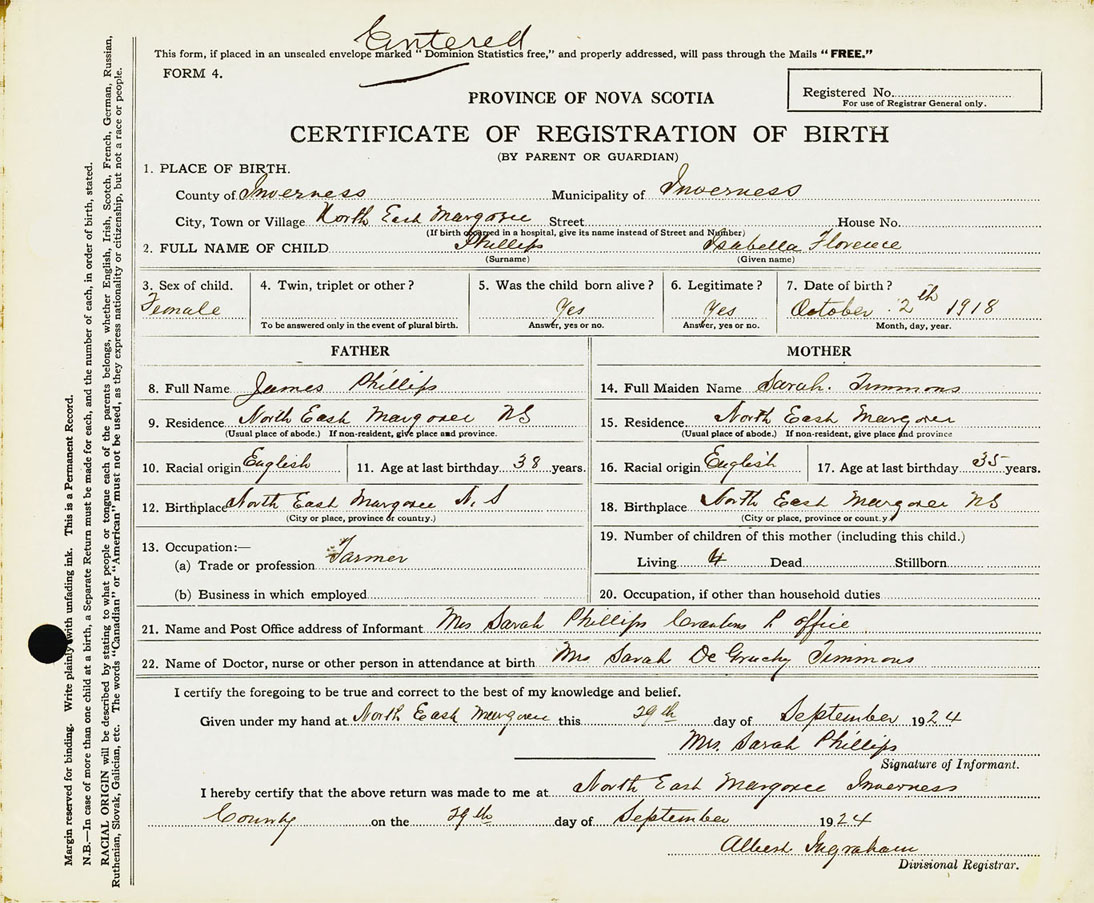 Entered
This form, if placed in an unsealed envelope marked "Dominion Statistics free," and properly addressed, will pass through the Mails "FREE."
FORM 4.
Registered No.
For use of Registrar General only.
PROVINCE OF NOVA SCOTIA
CERTIFICATE OF REGISTRATION OF BIRTH
(BY PARENT OR GUARDIAN)
1. PLACE OF BIRTH.
County of Inverness Municipality of Inverness
City, Town or Village North East Margaree Street House No.
(If birth occurred in a hospital, give its name instead of Street and Number)
2. FULL NAME OF CHILD Phillips Isabella Florence
(Surname) (Given name)
3. Sex of child. 4. Twin, triplet or other? 5. Was the child born alive? 6. Legitimate? 7. Date of birth?
Female Yes Yes October 2th 1918
To be answered only in the event of plural birth. Answer, yes or no. Answer, yes or no. Month, day, year.
FATHER MOTHER
8. Full Name James Phillips 14. Full Maiden Name Sarah. Timmons
9. Residence North East Margaree NS 15. Residence North East Margaree
(Usual place of abode.) If non-resident, give place and province. (Usual place of abode.) If non-resident, give place and province
10. Racial origin English 11. Age at last birthday 38 years. 16. Racial origin English 17. Age at last birthday 35 years.
12. Birthplace North East Margaree N.S 18. Birthplace North East Margaree NS
(City or place, province or country.) (City or place, province or country.)
13. Occupation:— 19. Number of children of this mother (including this child.)
(a) Trade or profession Farmer Living 4 Dead Stillborn
(b) Business in which employed 20. Occupation, if other than household duties
21. Name and Post Office address of Informant Mrs Sarah Phillips P office
22. Name of Doctor, nurse or other person in attendance at birth Mrs Sarah De Gruchy Timmons
I certify the foregoing to be true and correct to the best of my knowledge and belief.
Given under my hand at North East Margaree this 29th day of September 1924
Mrs. Sarah Phillips
Signature of Informant.
I hereby certify that the above return was made to me at North East Margaree Inverness
County on the 29th day of September 1924
Albert Ingraham
Divisional Registrar.
Margin reserved for binding. Write plainly with unfading ink. This is a Permanent Record.
N.B.—In case of more than one child at a birth, a Separate Return must be made for each, and the number of each, in order of birth, stated.
RACIAL ORIGIN will be described by stating to what people or tongue each of the parents belongs, whether English, Irish, Scotch, French, German, Russian,
Ruthenian, Slovak, Galician, etc. The words "Canadian" or "American" must not be used, as they express nationality or citizenship, but not a race or people.